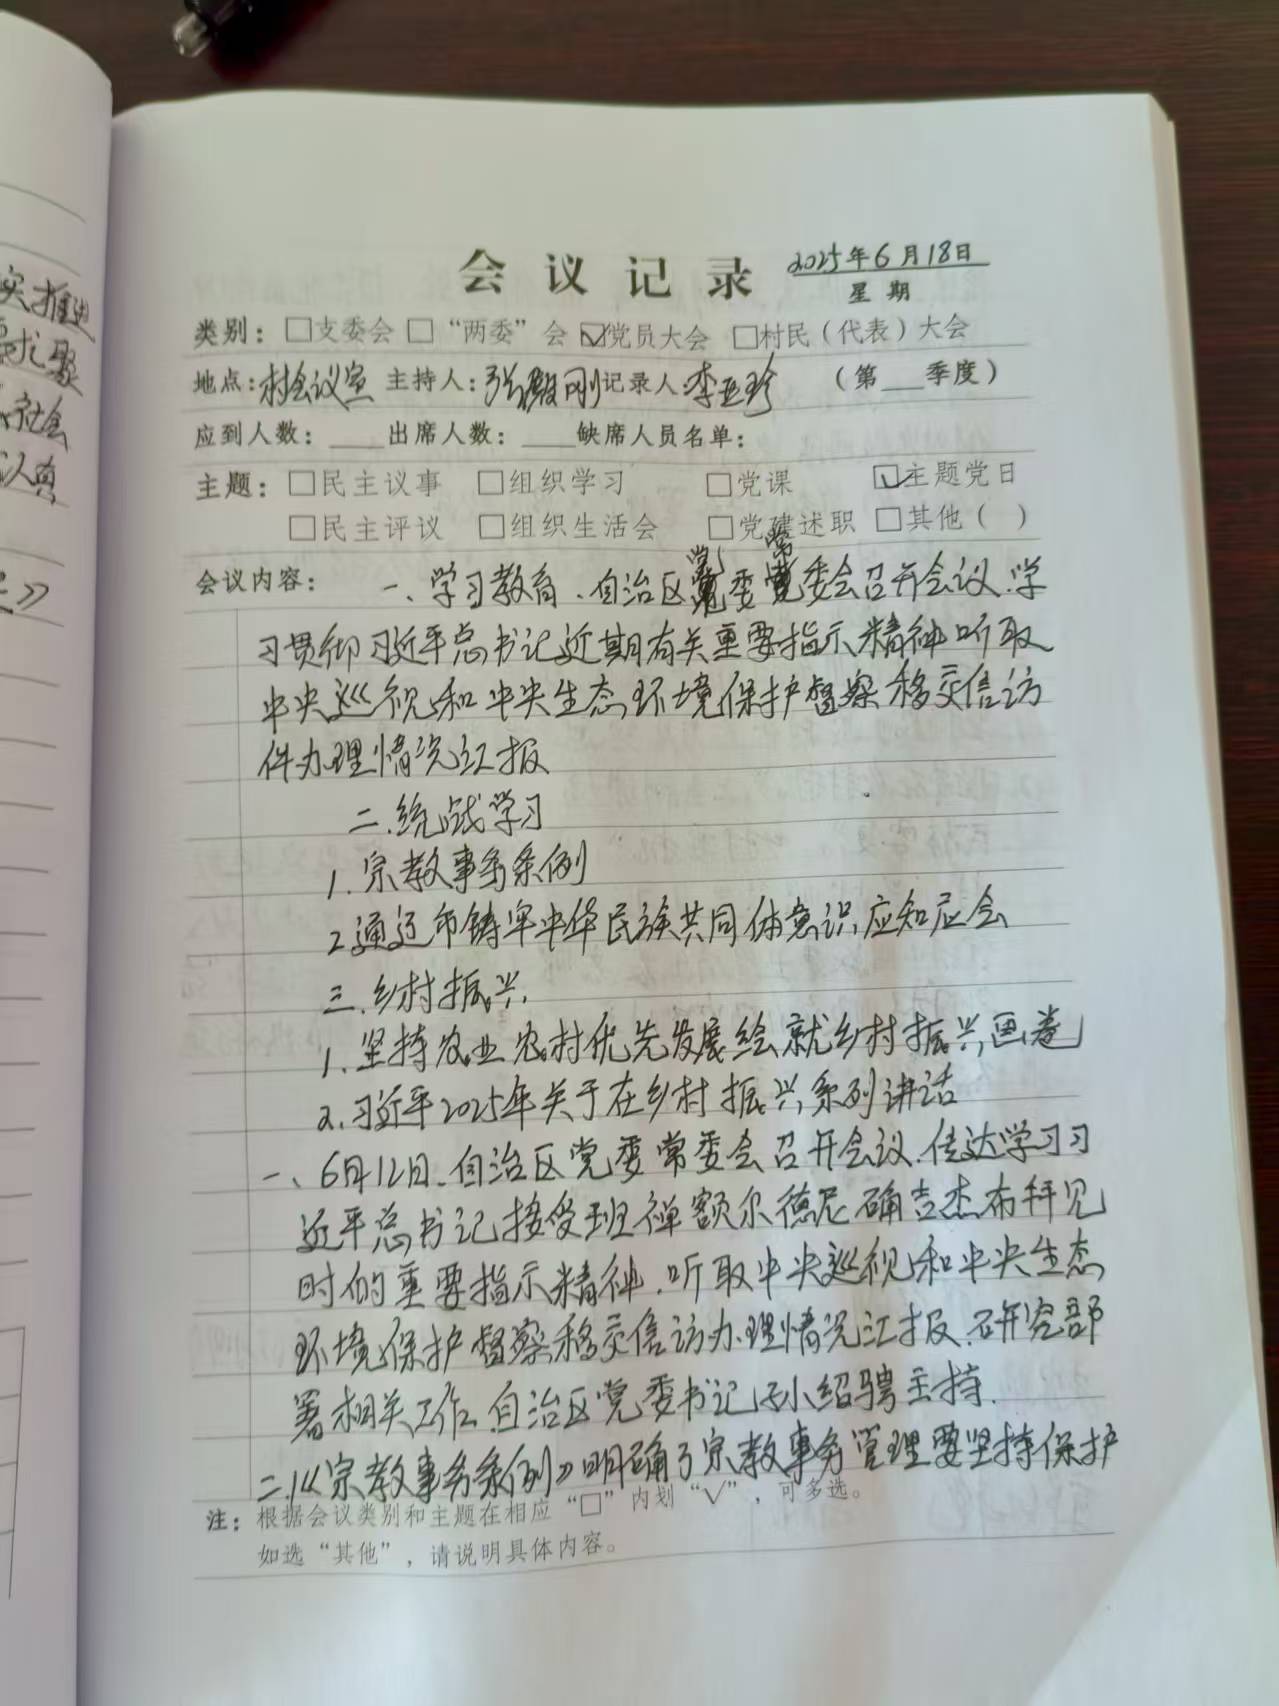 会议记录 2025年6月18日
星期
类别：□支委会 □“两委”会 ☑党员大会 □村民（代表）大会
地点：村会议室 主持人：张殿刚 记录人：李亚珍 （第 季度）
应到人数： 出席人数： 缺席人员名单：
主题：□民主议事 □组织学习 □党课 ☑主题党日
□民主评议 □组织生活会 □党建述职 □其他（ ）
会议内容： 一、学习教育、自治区党委常委会召开会议.学
习贯彻习近平总书记近期有关重要指示精神听取
中央巡视和中央生态环境保护督察移交信访
件办理情况汇报
二.统战学习
1.宗教事务条例
2.通辽市铸牢中华民族共同体意识应知应会
三.乡村振兴.
1.坚持农业农村优先发展绘就乡村振兴画卷
2.习近平2025年关于在乡村振兴系列讲话
一、6月12日.自治区党委常委会召开会议.传达学习习
近平总书记接受班禅额尔德尼确吉杰布拜见
时的重要指示精神.听取中央巡视和中央生态
环境保护督察移交信访办理情况汇报.研究部
署相关工作.自治区党委书记孙绍骋主持.
二.1.《宗教事务条例》明确了宗教事务管理要坚持保护
注：根据会议类别和主题在相应“□”内划“√”，可多选。
如选“其他”，请说明具体内容。
实推进
聚
社会
认真
》